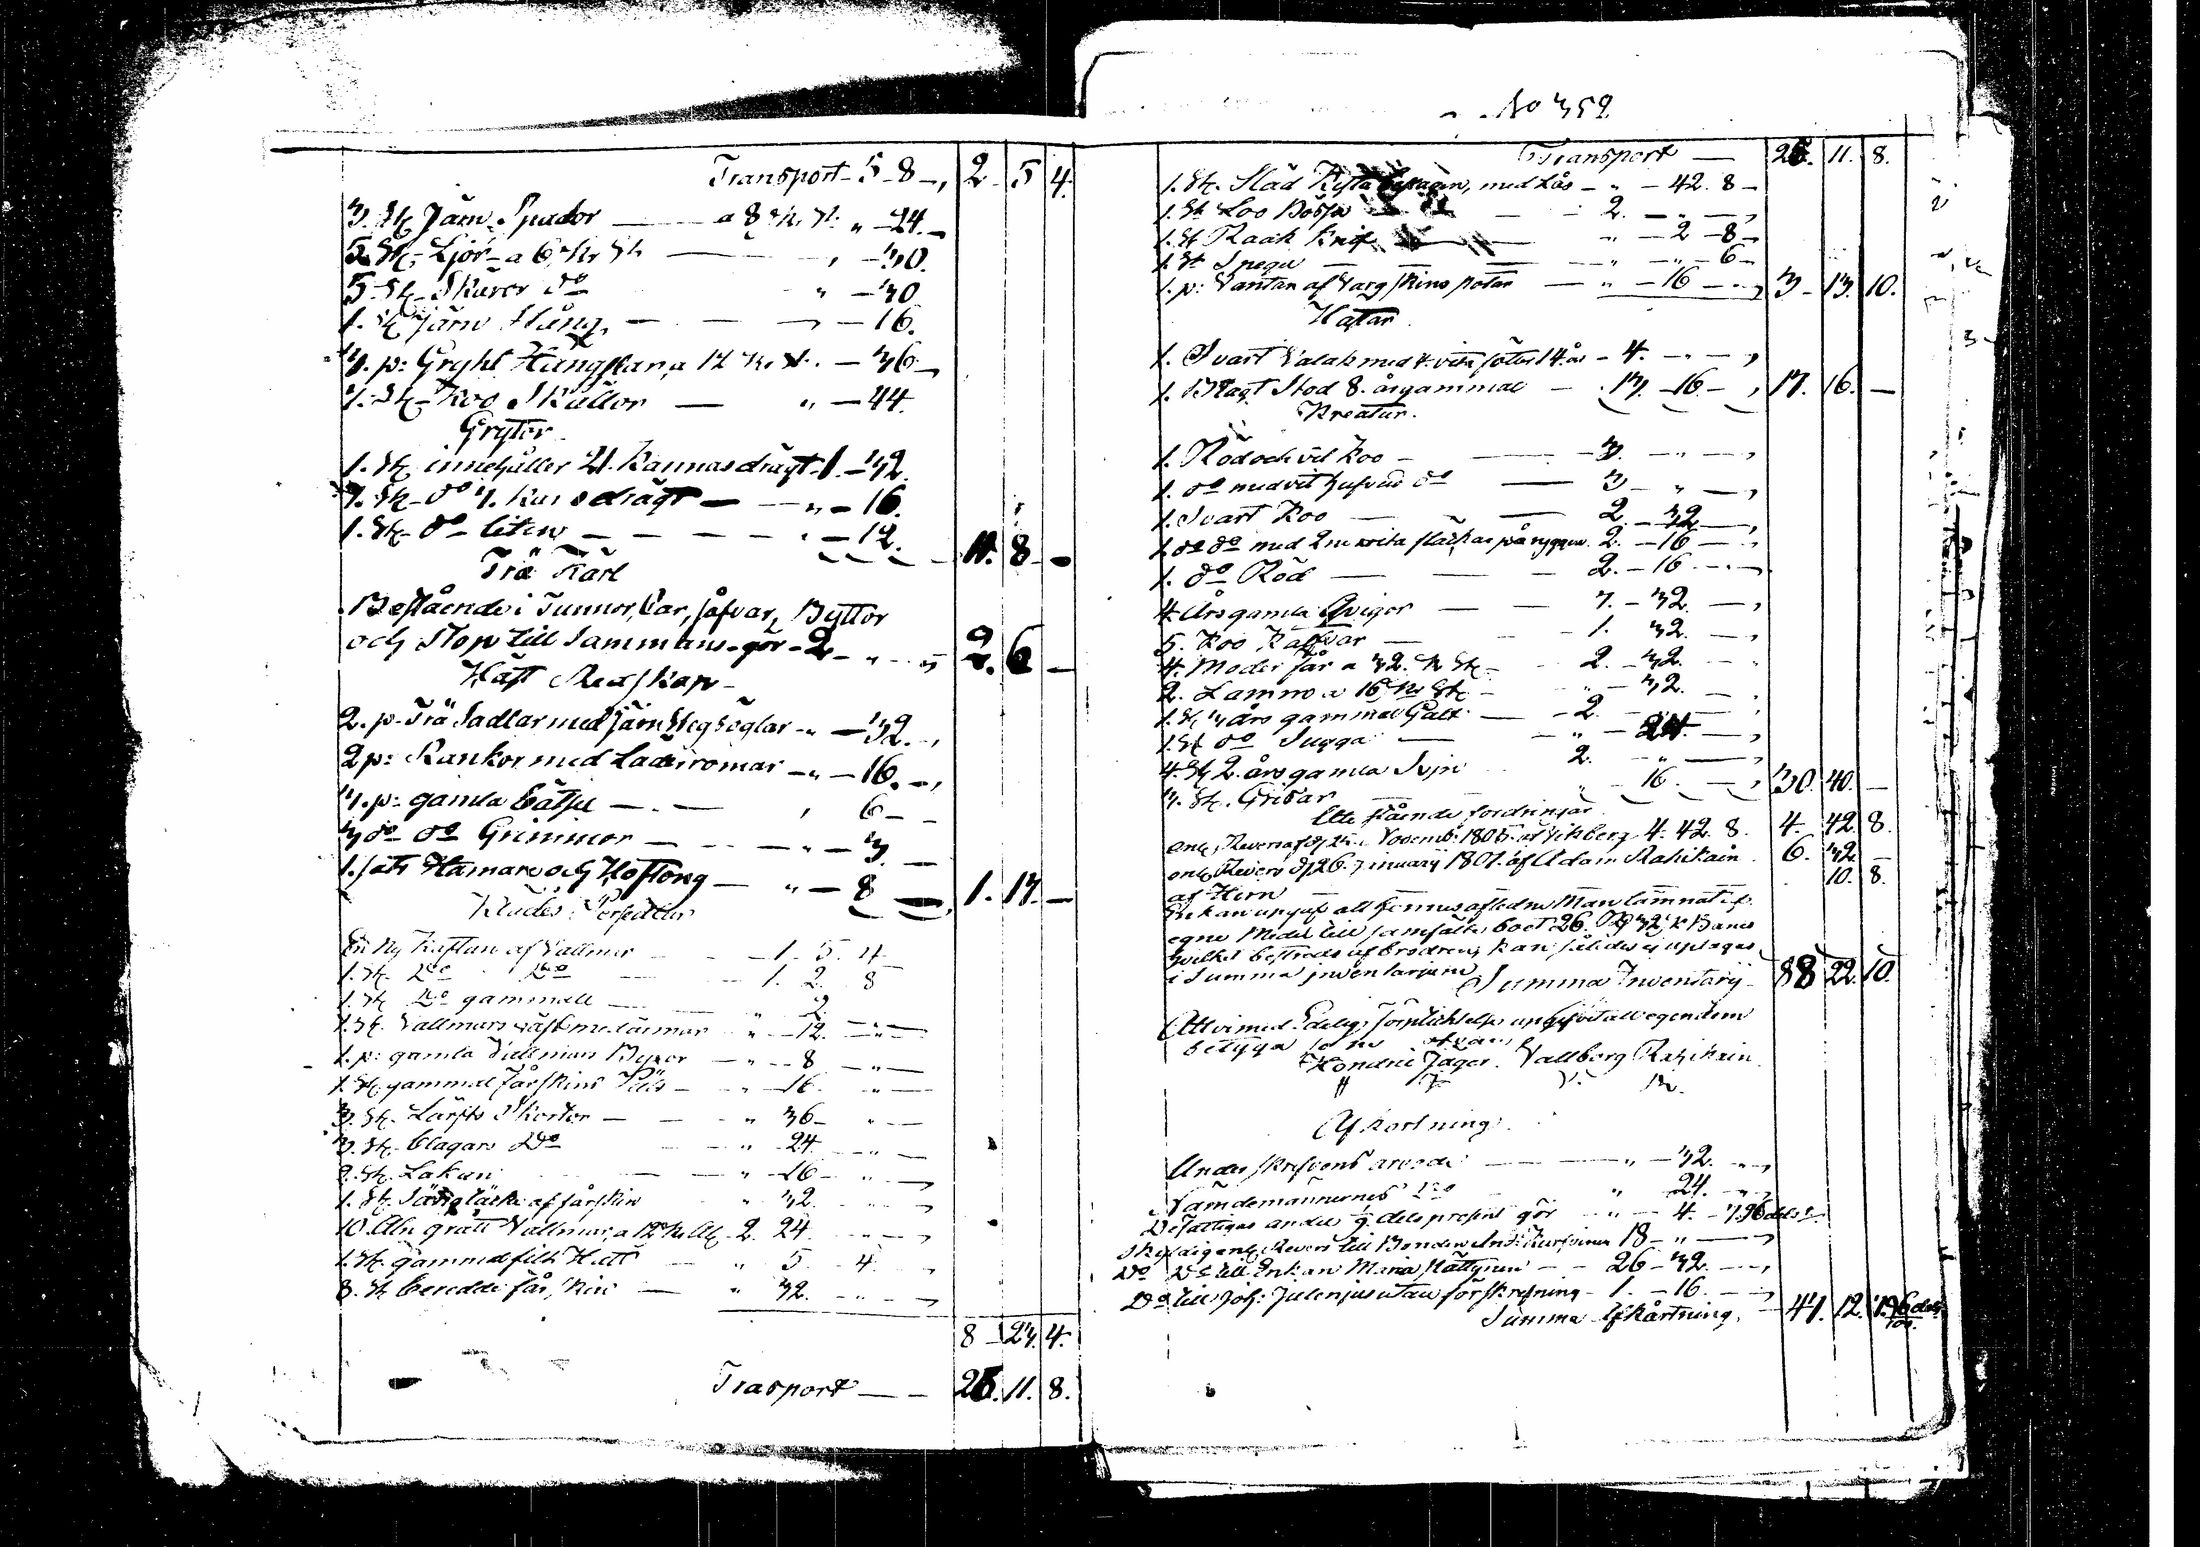 Transport - 5 - 8 - , 2 5 4.
3. St. Järn Spador — a 8 s. St. „ - 24. -
5. St. Lijor - a 6 s. St. — , - 30.
5 St. Skäror do „ - 30
1. St. Järn Stång, — - 16.
3. p: Gryht Hängslar, a 12 s. St. - 36 -
1. St. Koo Skällor — „ - 44.
Grytor
1. St. innehåller 21. Kannas drägt - 1. - 32.
1. St. do 7. Kañs drägt — „ - 16.
1. St. do liten — - 12. 11. 8 -
Trä Kärl
Bestående i Tunnor, Kar, såfvar, Byttor
och Stop till Sammans gör - 2 - „ 2. 6 -
Häst Redskap -
2. p. Trä Sadlar med järn Stegböglar - „ - 32. - ,
2 p: Rankor med Läderömar - „ - 16. - ,
3. p: gamla Betsel — , 6 - -
3 do do Grimmor — „ - 3. -
1. sats Hamare och Hoftong — „ - 8 - 1. 13. -
Klädes Persedlar
En Ny Kaftan af Vallmar — 1. 5. 4
1. St. Do Do — 1. 2. 8
1. St. Do gammall — „ 2
1. St. Vallmars väst med ärmar „ 12. —
1. p: gamla Vallmars Byxor — „ 8 „ —
1. St. gammal Fårskins Päls — „ 16 „ —
3. St. Lärfts Skortor — „ 36 - „ —
3. St. blagarn Do „ 24 —
2. St. Lakan — „ 16 - „ —
1. St. Sängtäcke af fårskin „ 32. —
10. Aln grått Vallmar, a 12 s. Al. 2. 24. —
1. St. gammal filt Hatt „ 5 4
8. St. beredde får skin — „ 32. —
8 23. 4.
Trasport — 25. 11. 8.
No 352
Transport — 25. 11. 8.
1. St. Slåd Kista, med Lås - „ - 42. 8 -
1. St. Loo Bössa — 2. - „ - ,
1. St. Raak Knif — „ - 2 - 8 -
1. St. Spegel — „ - „ - 6 -
1. p: Vantar af Varg skins potar — „ - 16 - 3 - 13. 10.
Hästar
1. Svart Valak med 4. vita fötter 14. år - 4. - „ - ,
1. Blagt Stod 8. år gammal — 13. - 16 - , 17. 16. —
Kreatur.
1. Röd och vit Koo — 3. - „ - ,
1. do med vit hufvud do — 3 - „ - ,
1. Svart Koo — 2. - 32 - ,
1. do do med 2ne hvita fläckar på ryggen. 2. - 16 - ,
1. do Röd — 2. - 16 - „ - ,
4. Års gamla Qvigor — 3. - 32. - ,
5. Koo Kalfvar — 1. 32. - ,
4. Moder får a 32. s. St. — 2. - 32. -
2. Lamm a 16 s. St. — „ - 32. - ,
1. St. 3 års gammal Galt — - 2. - ,
1. St. do Sugga — „ - 24. - ,
4. St. 2. års gamla Svin 2. - „ - ,
3. St. Grisar — „ 16. - , 30. 40. —
Ute stående fordringar
enl. Revers af d. 25. Novemb. 1805. af Vikberg 4. 42. 8. 4. 42. 8.
enl. Revers d. 26. January 1807. af Adam Rahikain 6. 32. —
af Hirn — 10. 8.
egne Medel till samfälte boet 26. Rd 32. s. Banco
hvilket bestrides af brodren, kan således ej uptagas
i Summa inventarium Summa Inventarij 88 22. 10.
Att vi med Edelig förplichtelse upgifvit all egendom
betyga
Hendric Jäger. Vallborg Rahikain
Afkortning.
Underskrifvens arvode — „ - 32. „ ,
Nämdemännernes Do „ 24. - „ ,
De fattigas andel ⅛ dels procent gör „ - 4. -
Skyldig enl. Revers till Bonden And: 18 - „ - ,
Do Do till Enkan Maria - - 26 - 32. - ,
Do till Joh: Julenius utan förskrifning - 1. - 16. - ,
Summa Afkårtning. - 47. 12.